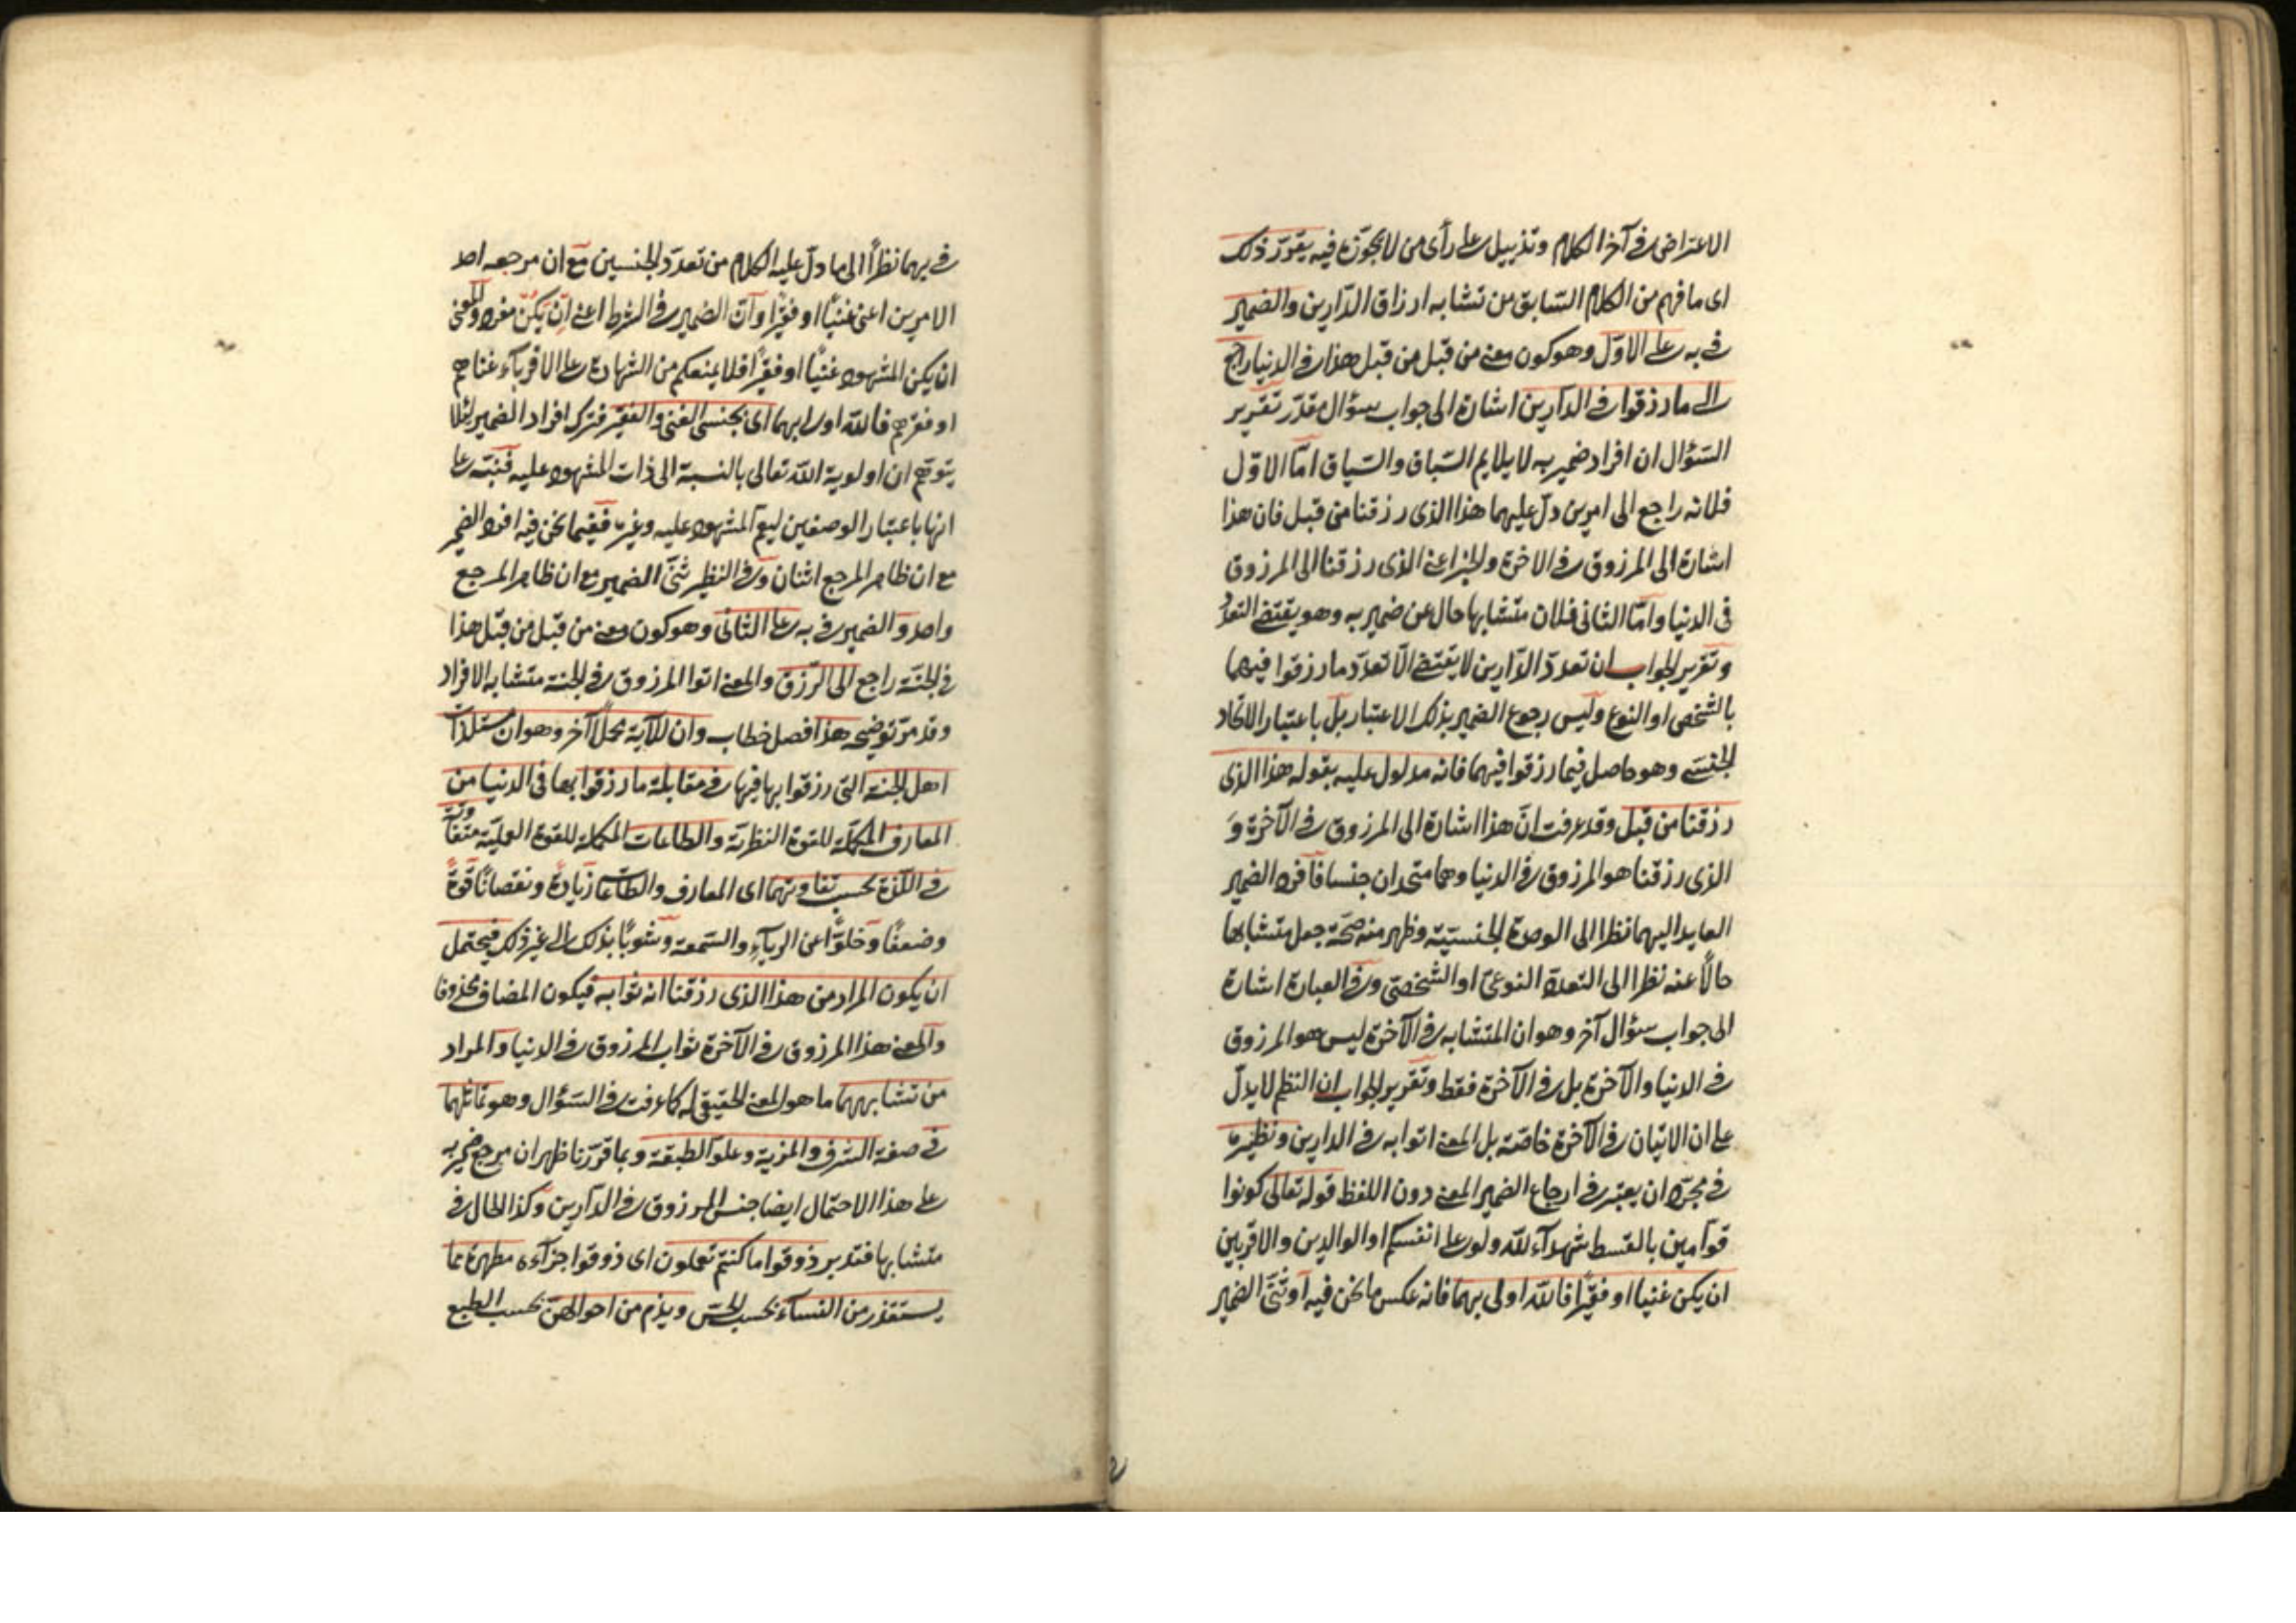 الاعتراض في آخر الكلام وتذييل على رأى من لا يجوّزه فيه يقرّر ذلك
اى ما فهم من الكلام السّابق من تشابه ارزاق الدّارين والضمير
في به على الاوّل وهو كون معنى من قبل من قبل هذا في الدنيا راجع
الى ما رزقوا في الدارين اشارة الى جواب سؤال مقدّر تقرير
السّؤال ان افراد ضمير به لا يلايم السّباق والسّياق امّا الاوّل
فلانه راجع الى امرين دلّ عليهما هذا الذى رزقنا من قبل فان هذا
اشارة الى المرزوق في الاخرة والخبر اعنى الذى رزقنا الى المرزوق
في الدنيا وامّا الثانى فلان متشابها حال من ضمير به وهو يقتضى التعدّد
وتقرير الجواب ان تعدد الدّارين لا يقتضى الّا تعدّد ما رزقوا فيهما
بالشّخص او النوع وليس رجوع الضمير بذلك الاعتبار بل باعتبار الاتحاد
الجنسى وهو حاصل فيما رزقوا فيهما فانه مدلول عليه بقوله هذا الذى
رزقنا من قبل وقد عرفت انّ هذا اشارة الى المرزوق في الآخرة وَ
الذى رزقنا هو المرزوق في الدنيا وهما متحدان جنسا فافرد الضمير
العايد اليهما نظرا الى الوحدة الجنسيّة وظهر منه صحّة جعل متشابها
حالًا عنه نظرا الى التعدد النوعىّ او الشّخصىّ وفي العبارة اشارة
الى جواب سؤال آخر وهو ان المتشابه في الآخرة ليس هو المرزوق
في الدنيا والآخرة بل في الآخرة فقط وتقرير الجواب ان النظم لا يدلّ
على ان الاتيان في الآخرة خاصّة بل المعنى اتوا به في الدارين ونظيره
في مجرّد ان يعتبر في ارجاع الضمير المعنى دون اللفظ قوله تعالى كونوا
قوّامين بالقسط شهدآء لله ولو على انفسكم او الوالدين والاقربين
ان يكن غنيا او فقيرًا فالله اولى بهما فانه عكس ما نحن فيه اذ ثنّى الضمير
في بهما نظرًا الى ما دلّ عليه الكلام من تعدّد الجنسين مع ان مرجعه احد
الامرين اعنى غنيًّا او فقيرًا وانّ الضمير في الشرط اعنى ان يكن مفرد والمعنى
ان يكن المشهود غنيًّا او فقيرًا فلا يمنعكم من الشهادة على الاقربآء غناهم
او فقرهم فالله اولى بهما اى بجنسى الغنى والفقير فترك افراد الضمير لئلا
يتوهّم ان اولوية الله تعالى بالنسبة الى ذات المشهود عليه فنبّه على
انها باعتبار الوصفين ليعمّ المشهود عليه وغيره ففيما نحن فيه افرد الضمير
مع ان ظاهر المرجع اثنان وفي النظير ثنّى الضمير مع ان ظاهر المرجع
واحد والضمير في به على الثانى وهو كون معنى من قبل من قبل هذا
في الجنّة راجع الى الرّزق والمعنى اتوا المرزوق في الجنة متشابه الافراد
وقد مرّ توضيحه هذا فصل خطاب وان للآية محلًا آخر وهو ان مستلذّات
اهل الجنة التى رزقوا بها فيها في مقابلة ما رزقوا بها في الدنيا من
المعارف المكمّلة للقوة النظريّة والطاعات المكملة للقوة العمليّة متفاوتة
في اللّذة بحسب تفاوتهما اى المعارف والطّاعات زيادةً ونقصانًا قوّةً
وضعفًا وخلوًّا عن الريآء والسّمعة وشوبًا بذلك الى غير ذلك فيحتمل
ان يكون المراد من هذا الذى رزقنا انه ثوابه فيكون المضاف محذوفا
والمعنى هذا المرزوق في الآخرة ثواب المرزوق في الدنيا والمراد
من تشابههما ما هو المعنى الحقيقى له كما عرفت في السّؤال وهو تماثلهما
في صفة الشرف والمزية وعلوّ الطبقة وبما قرّرنا ظهر ان مرجع ضمير به
على هذا الاحتمال ايضا جنس المرزوق في الدّارين وكذا الحال في
متشابها فتدبر ذوقوا ما كنتم تعملون اى ذوقوا جزآءه مطهرة مما
يستقذر من النسآء بحسب الحسّ ويذم من احوالهنّ بحسب الطبع